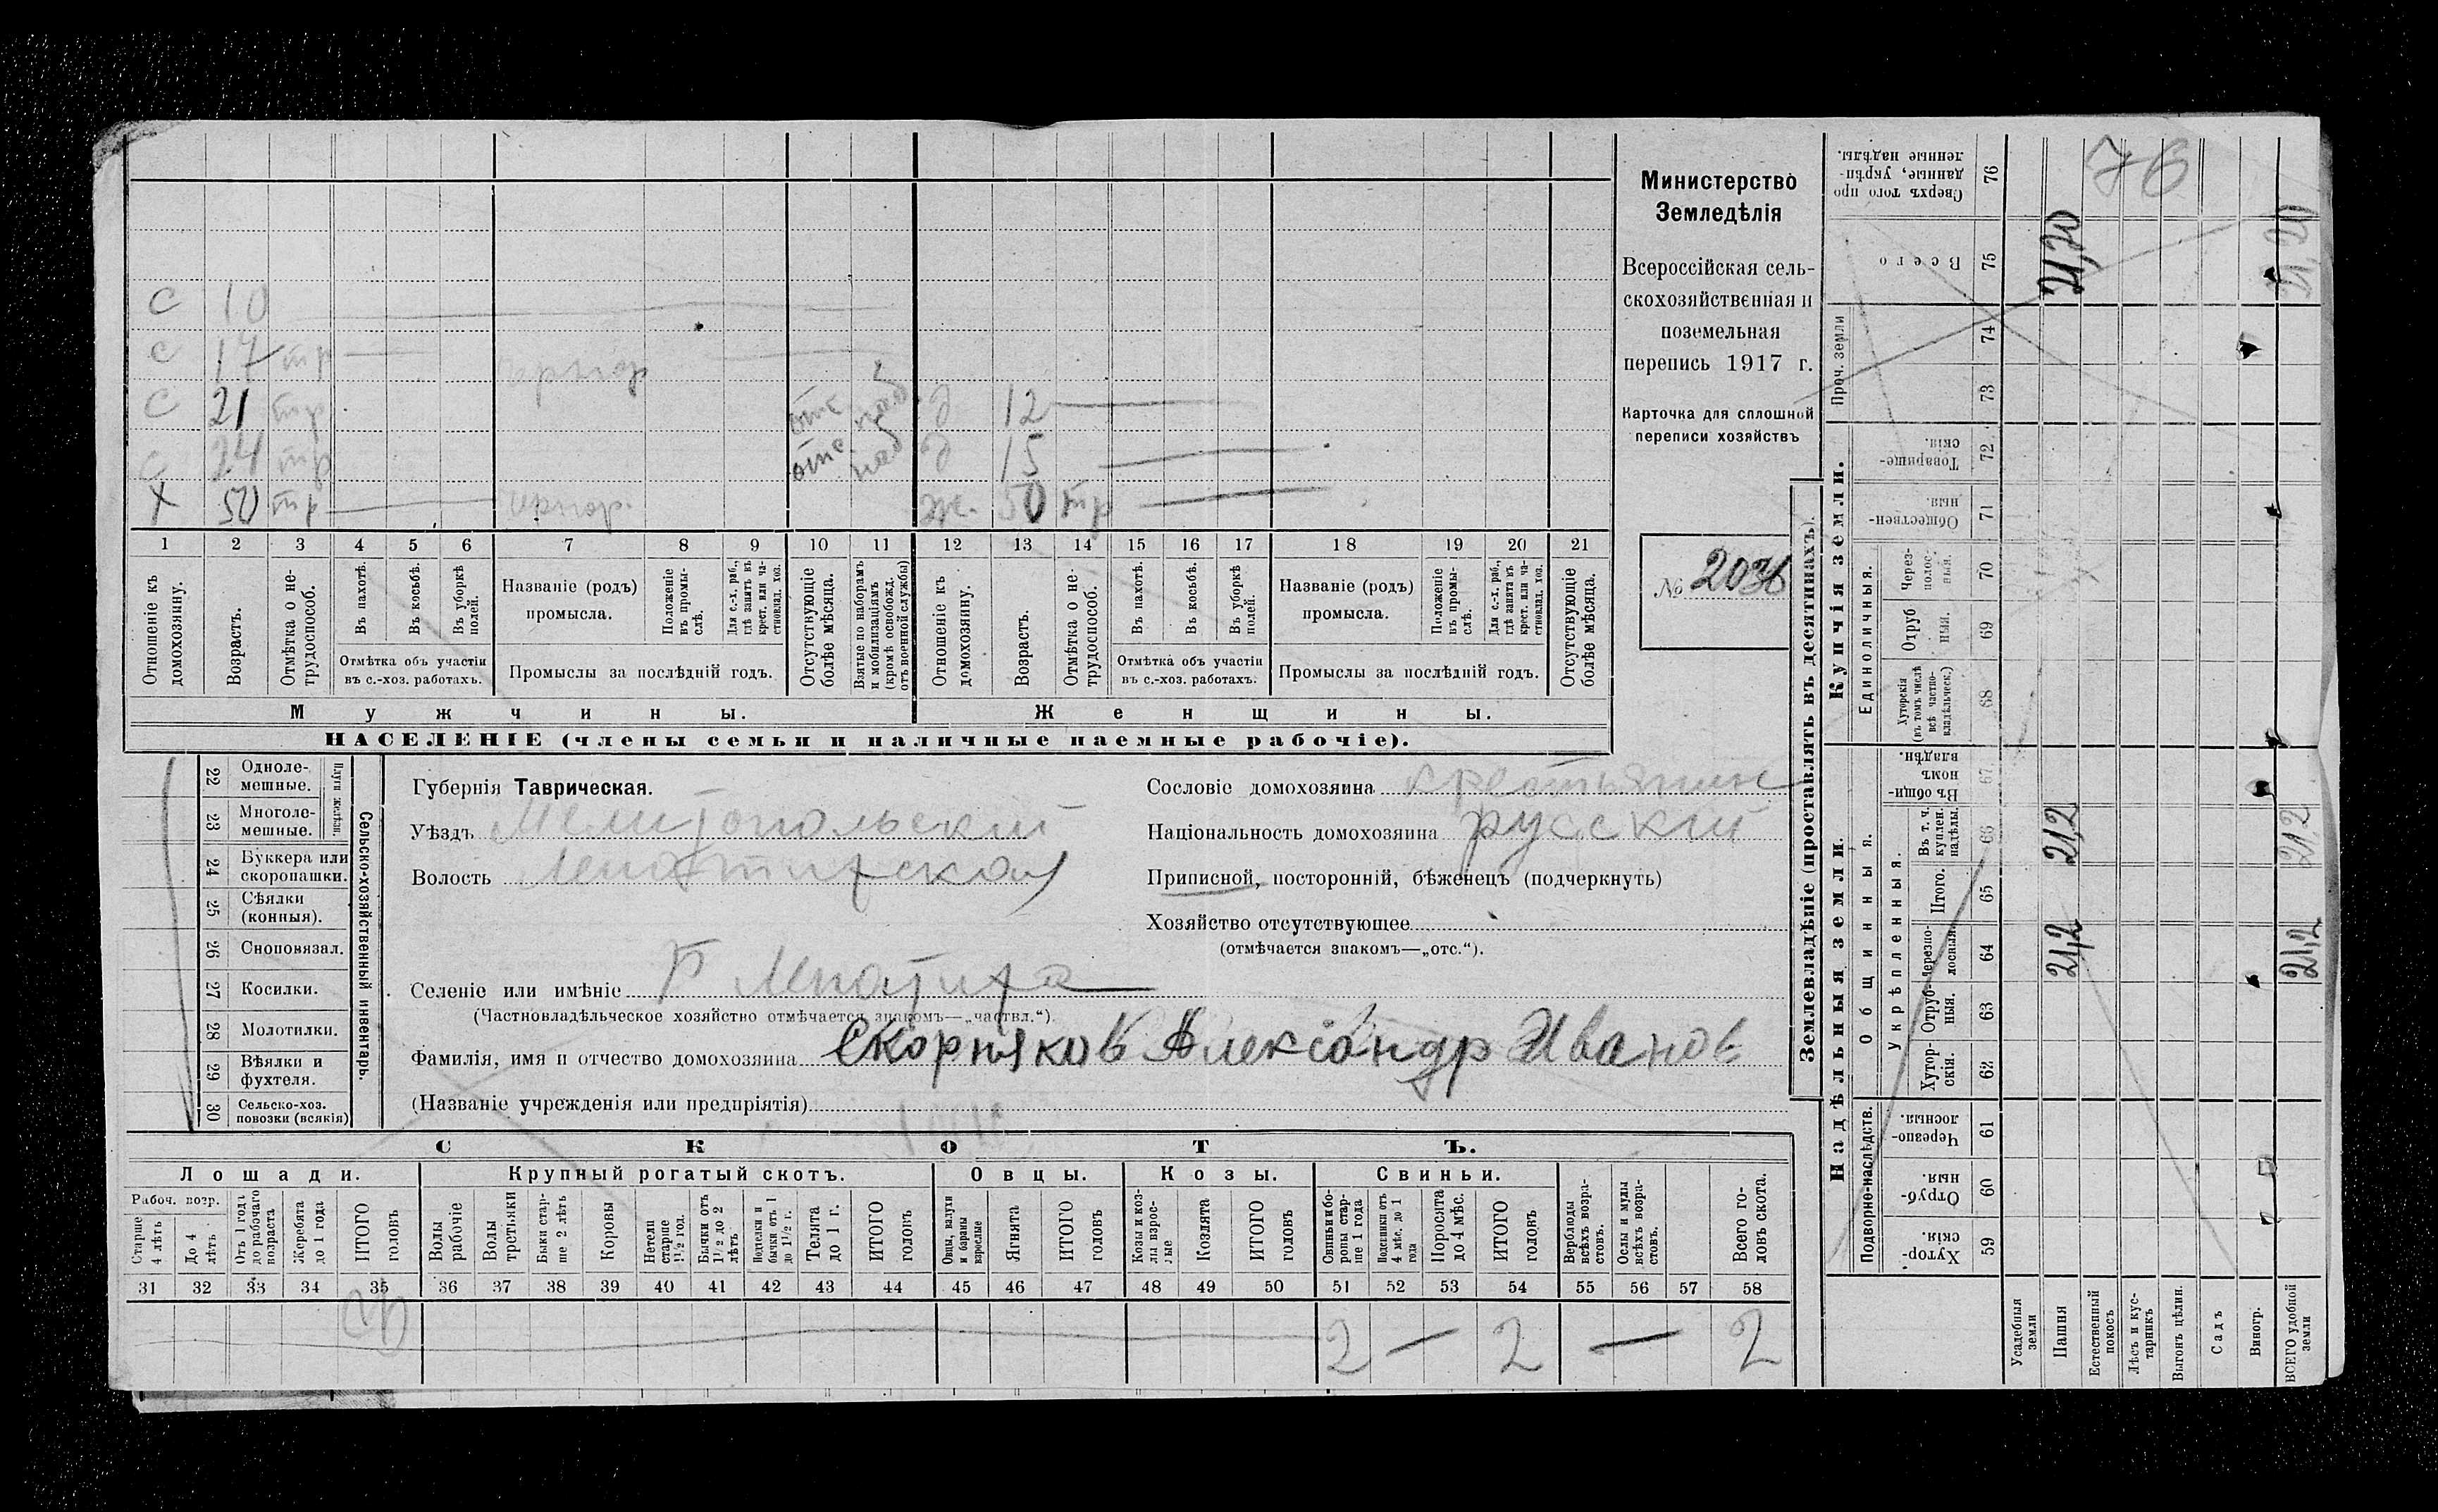 с 10
с 17 тр
с 21 тр отс наб. д 12
с 24 тр отс наб д 15
х 50 тр ж. 50 тр
1 2 3 4 5 6 7 8 9 10 11 12 13 14 15 16 17 18 19 20 21
Отношеніе къ домохозяину.
Возрастъ.
Отмѣтка о не-трудоспособ.
Въ пахотѣ.
Въ косьбѣ.
Въ уборкѣ полей.
Отмѣтка объ участіи
въ с.-хоз. работахъ.
Названіе (родъ)
промысла.
Положеніе въ промы-слѣ.
Для с.-х. раб., гдѣ занятъ въ крест. или ча-стновлад. хоз.
Промыслы за послѣдній годъ.
Отсутствующіе болѣе мѣсяца.
Взятые по наборамъ и мобилизаціямъ (кромѣ освобожд. отъ военной службы)
Отношеніе къ домохозяину.
Возрастъ.
Отмѣтка о не-трудоспособ.
Въ пахотѣ.
Въ косьбѣ.
Въ уборкѣ полей.
Отмѣтка объ участіи
въ с.-хоз. работахъ.
Названіе (родъ)
промысла.
Положеніе въ промы-слѣ.
Для с.-х. раб., гдѣ занята въ крест. или ча-стновлад. хоз.
Промыслы за послѣдній годъ.
Отсутствующіе болѣе мѣсяца.
Мужчины.
Женщины.
НАСЕЛЕНІЕ (члены семьи и наличные наемные рабочіе).
Министерство
Земледѣлія
Всероссійская сель-
скохозяйственная и
поземельная
перепись 1917 г.
Карточка для сплошной
переписи хозяйствъ
№ 2036
22 Одноле-мешные.
23 Многоле-мешные.
Плуги желѣзн.
24 Буккера или скоропашки.
25 Сѣялки (конныя).
26 Сноповязал.
27 Косилки.
28 Молотилки.
29 Вѣялки и фухтеля.
30 Сельско-хоз. повозки (всякія)
Сельско-хозяйственный инвентарь.
Губернія Таврическая.
Уѣздъ Мелитопольскій
Волость Лепатихская
Селеніе или имѣніе Б Лепатиха
(Частновладѣльческое хозяйство отмѣчается знакомъ—„частвл.“)
Фамилія, имя и отчество домохозяина Скорняков Александр Иванов
(Названіе учрежденія или предпріятія)
Сословіе домохозяина крестьянин
Національность домохозяина русский
Приписной, посторонній, бѣженецъ (подчеркнуть)
Хозяйство отсутствующее
(отмѣчается знакомъ—„отс.“).
СКОТЪ.
Лошади.
Крупный рогатый скотъ.
Овцы.
Козы.
Свиньи.
Рабоч. возр.
Старше 4 лѣтъ
До 4 лѣтъ
Отъ 1 года до рабочаго возраста
Жеребята до 1 года
ИТОГО головъ
Волы рабочіе
Волы третьяки
Быки стар-ше 2 лѣтъ
Коровы
Нетели старше 1½ год.
Бычки отъ 1½ до 2 лѣтъ
Подтелки и бычки отъ 1 до 1½ г.
Телята до 1 г.
ИТОГО головъ
Овцы, валухи и бараны взрослые
Ягнята
ИТОГО головъ
Козы и коз-лы взрос-лые
Козлята
ИТОГО головъ
Свиньи и бо-ровы стар-ше 1 года
Подсвинки отъ 4 мѣс. до 1 года
Поросята до 4 мѣс.
ИТОГО головъ
Верблюды всѣхъ возра-стовъ.
Ослы и мулы всѣхъ возра-стовъ.
Всего го-ловъ скота.
31 32 33 34 35 36 37 38 39 40 41 42 43 44 45 46 47 48 49 50 51 52 53 54 55 56 57 58
2 — 2 — 2
Землевладѣніе (проставлять въ десятинахъ).
Купчія земли.
Надѣльныя земли.
Единоличныя.
Общинныя.
Укрѣпленныя.
Подворно-наслѣдств.
Сверхъ того про-данные, укрѣп-ленные надѣлы. 76
Всего 75
Проч. земли 74 73
Товарище-скія. 72
Обществен-ныя. 71
Через-полос-ныя. 70
Отруб ныя. 69
Хуторскія (въ томъ числѣ всѣ частно-владѣльческ.) 68
Въ общи-номъ владѣн. 67
Въ т. ч. куплен. надѣлы. 66
Итого. 65
Черезпо-лосныя. 64
Отруб-ныя. 63
Хутор-скія. 62
Черезпо-лосныя. 61
Отруб-ныя. 60
Хутор-скія. 59
Усадебныя земли
Пашня
Естественный покосъ
Лѣсъ и кус-тарникъ
Выгонъ цѣлин.
Садъ
Виногр.
ВСЕГО удобной земли
76
21,20
21,2
21,2
21,20
21,2
21,2